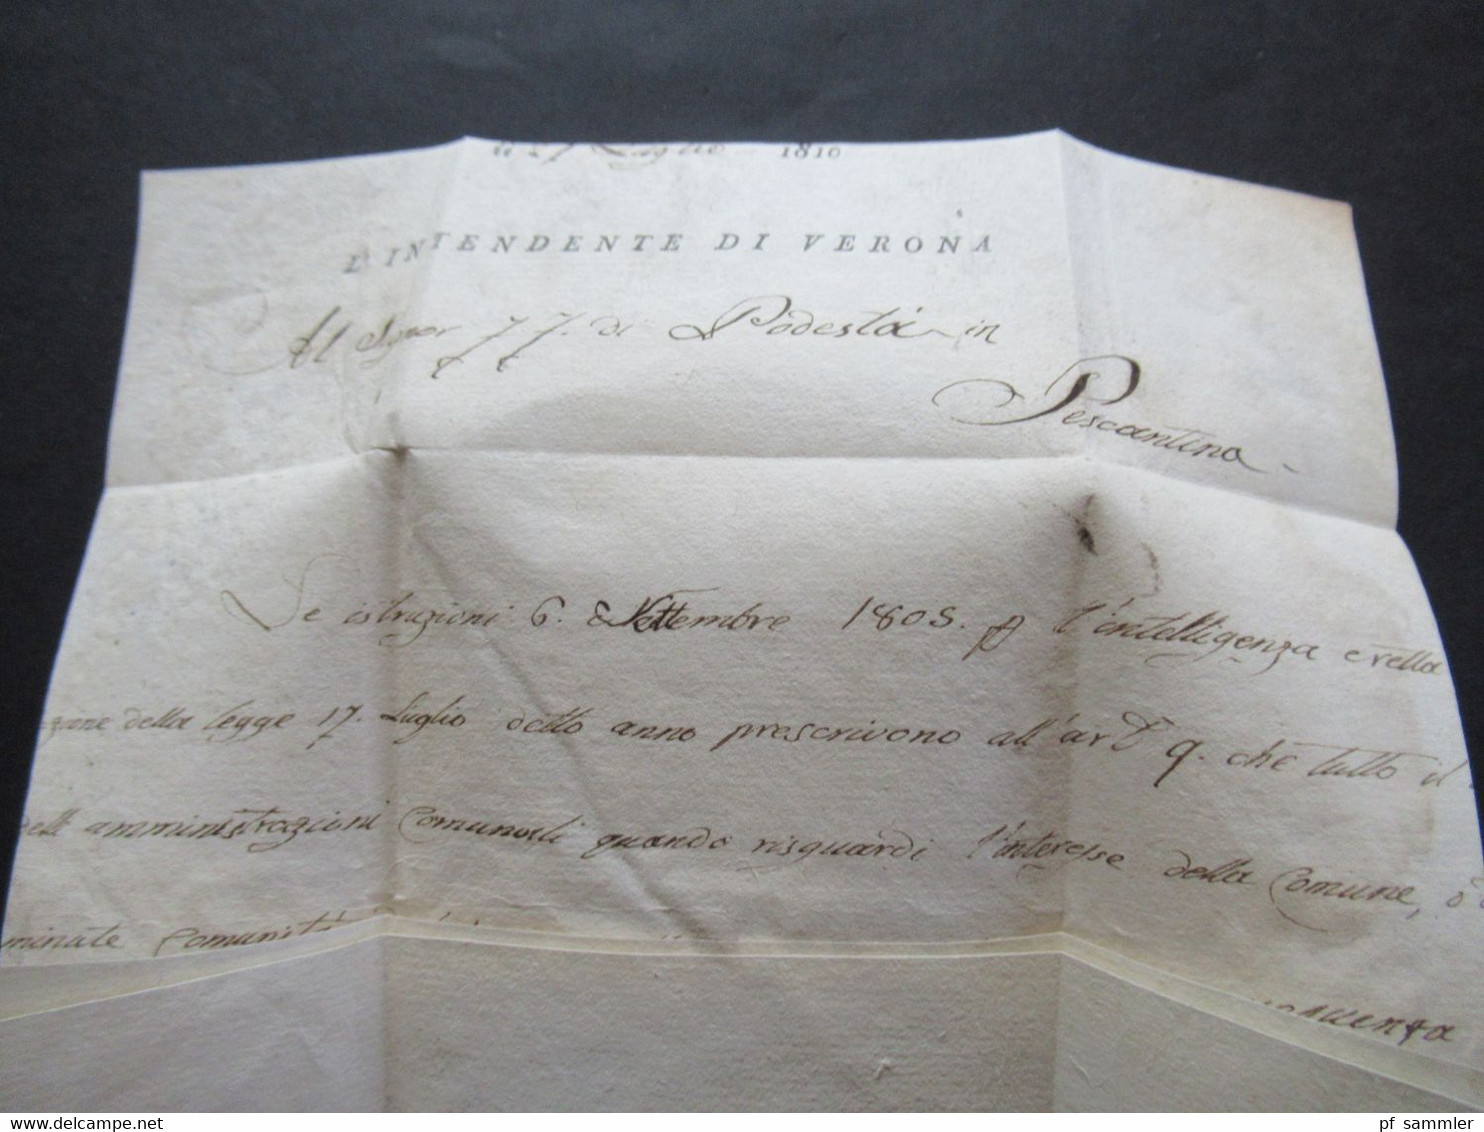 Luglio 1810
L'INTENDENTE DI VERONA
Al Signor ff. di Podestà in
Pescantina
Le istruzioni 6. Settembre 1805. l'intelligenza e retta
della legge 17. Luglio detto anno prescrivono all'art 9. che tutto il
delle amministrazioni Comunali quando risguardi l'interesse della Comune, o
minate Comunità
www.delcampe.net
pf_sammler